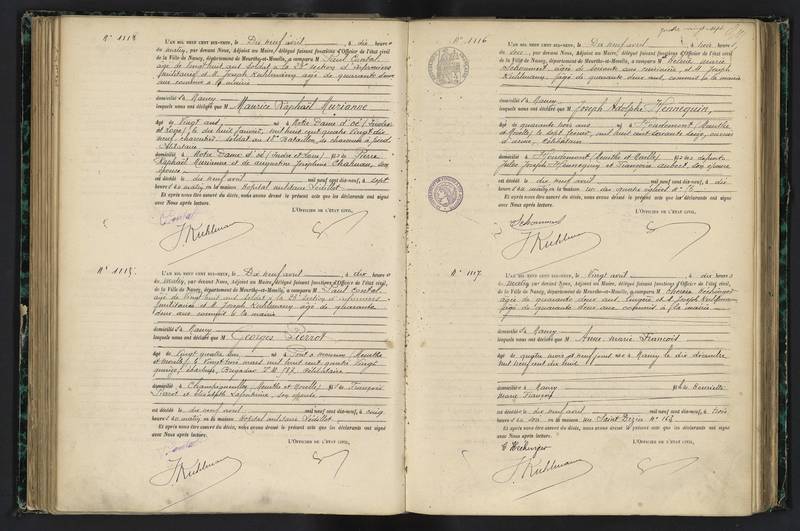 N° 1114
L'AN MIL NEUF CENT DIX-NEUF, le Dix neuf avril, à dix heures
du matin, par devant Nous, Adjoint au Maire, délégué faisant fonctions d'Officier de l'état civil
de la Ville de Nancy, département de Meurthe-et-Moselle, a comparu M Paul Contal
âgé de vingt huit ans soldat à la 23e section d'infirmiers
militaires et M. Joseph Kuhlmann âgé de quarante deux
ans commis à la mairie
domicilié à Nancy
lesquels nous ont déclaré que M Maurice Raphaël Murianne
âgé de vingt ans, né à Notre Dame d'Oé (Indre
et Loire) le dix huit janvier mil huit cent quatre vingt dix
neuf, soldat au bataillon de chasseurs à pied
célibataire
domicilié à Notre Dame d'Oé (Indre et Loire) fils de Pierre
Raphaël Murianne et de Augustine Joséphine son
épouse
est décédé le dix neuf avril mil neuf cent dix-neuf, à sept
heures du matin, en la maison Hôpital militaire Sédillot
Et après nous être assuré du décès, nous avons dressé le présent acte que les déclarants ont signé
avec Nous après lecture.
L'OFFICIER DE L'ÉTAT CIVIL,
Contal
J. Kuhlmann
N° 1115
L'AN MIL NEUF CENT DIX-NEUF, le Dix neuf avril, à dix heures
du matin, par devant Nous, Adjoint au Maire, délégué faisant fonctions d'Officier de l'état civil,
de la Ville de Nancy, département de Meurthe-et-Moselle, a comparu M Paul Contal
âgé de vingt huit ans soldat à la 23e section d'infirmiers
militaires et M. Joseph Kuhlmann âgé de quarante
deux ans commis à la mairie
domicilié à Nancy
lesquels nous ont déclaré que M Georges Pierrot
âgé de vingt quatre ans né à Pont à Mousson (Meurthe
et Moselle) le vingt mars mil huit cent quatre vingt
quinze, Brigadier célibataire
domicilié à Champigneulles (Meurthe et Moselle) fils de François
Pierrot et Elisabeth son épouse
est décédé le dix neuf avril mil neuf cent dix-neuf, à cinq
heures du matin, en la maison Hôpital militaire Sédillot
Et après nous être assuré du décès, nous avons dressé le présent acte que les déclarants ont signé
avec Nous après lecture.
L'OFFICIER DE L'ÉTAT CIVIL,
Contal
J. Kuhlmann
N° 1116
L'AN MIL NEUF CENT DIX-NEUF, le Dix neuf avril, à heures
du soir, par devant Nous, Adjoint au Maire, délégué faisant fonctions d'Officier de l'état civil
de la Ville de Nancy, département de Meurthe-et-Moselle, a comparu M Marie
âgée de soixante ans et M. Joseph
Kuhlmann, âgé de quarante deux ans, commis à la mairie
domicilié à Nancy
lesquels nous ont déclaré que M Joseph Adolphe Hennequin,
âgé de quarante trois ans né à (Meurthe
et Moselle) le sept mil huit cent soixante seize, ouvrier
d'usine, célibataire
domicilié à (Meurthe et Moselle) fils de défunts
Jules Joseph Hennequin et Françoise Aubert, son épouse
est décédé le dix neuf avril mil neuf cent dix-neuf, à dix
heures du matin, en la maison rue des quatre églises N°
Et après nous être assuré du décès, nous avons dressé le présent acte que les déclarants ont signé
avec Nous après lecture.
L'OFFICIER DE L'ÉTAT CIVIL,
J. Kuhlmann
N° 1117
L'AN MIL NEUF CENT DIX-NEUF, le Vingt avril, à dix heures
du matin, par devant Nous, Adjoint au Maire, délégué faisant fonctions d'Officier de l'état civil,
de la Ville de Nancy, département de Meurthe-et-Moselle, a comparu M
âgée de quarante deux ans, lingère et M. Joseph Kuhlmann
âgé de quarante deux ans commis à la mairie
domicilié à Nancy
lesquels nous ont déclaré que M Anne Marie François
âgé de quatre mois et neuf jours née à Nancy le dix décembre
mil neuf cent dix huit
domicilié à Nancy fille de Henriette
Marie François
est décédé le dix neuf avril mil neuf cent dix-neuf, à trois
heures du soir en la maison rue Saint Dizier N° 164
Et après nous être assuré du décès, nous avons dressé le présent acte que les déclarants ont signé
avec Nous après lecture.
L'OFFICIER DE L'ÉTAT CIVIL,
J. Kuhlmann